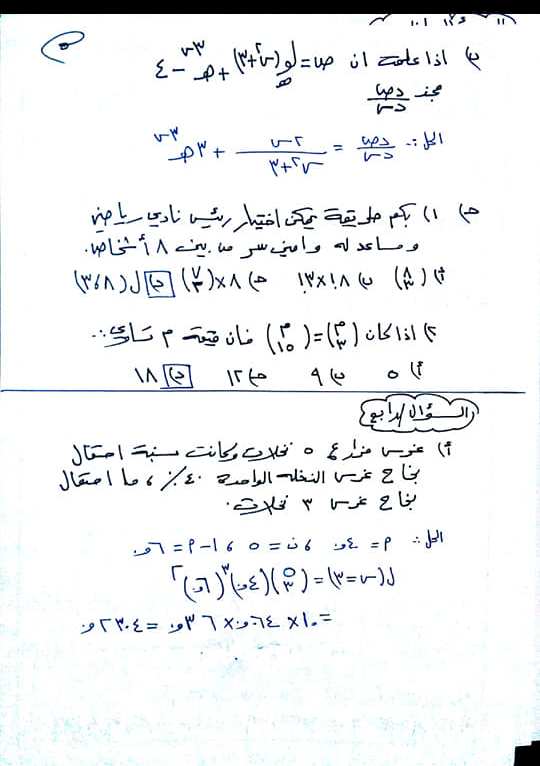 ب) اذا علمت ان ص = لو هـ (س٢ + ٣) + هـ ٣س - ٤
جد دص/دس
الحل: دص/دس = ٢س/(س٢ + ٣) + ٣هـ ٣س
جـ) ١) بكم طريقة يمكن اختيار رئيس نادي رياضي
ومساعد له وامين سر من بين ٨ أشخاص.
أ) (٨ ٣) ب) ٨! × ٣! جـ) ٨ × (٧ ٣) د) ل(٨،٣)
٢) اذا كان (م ٣) = (م ١٥) فان قيمة م تساوي:
أ) ٥ ب) ٩ جـ) ١٢ د) ١٨
السؤال الرابع
أ) غرس مزارع ٥ نخلات وكانت نسبة احتمال
نجاح غرس النخله الواحدة ٤٠٪، ما احتمال
نجاح غرس ٣ نخلات.
الحل: م = ٤و. ، ن = ٥ ، ١ - م = ٦و.
ل(س = ٣) = (٥ ٣) (٤و.)٣ (٦و.)٢
= ١٠ × ٠٦٤و. × ٣٦و. = ٢٣٠٤و.